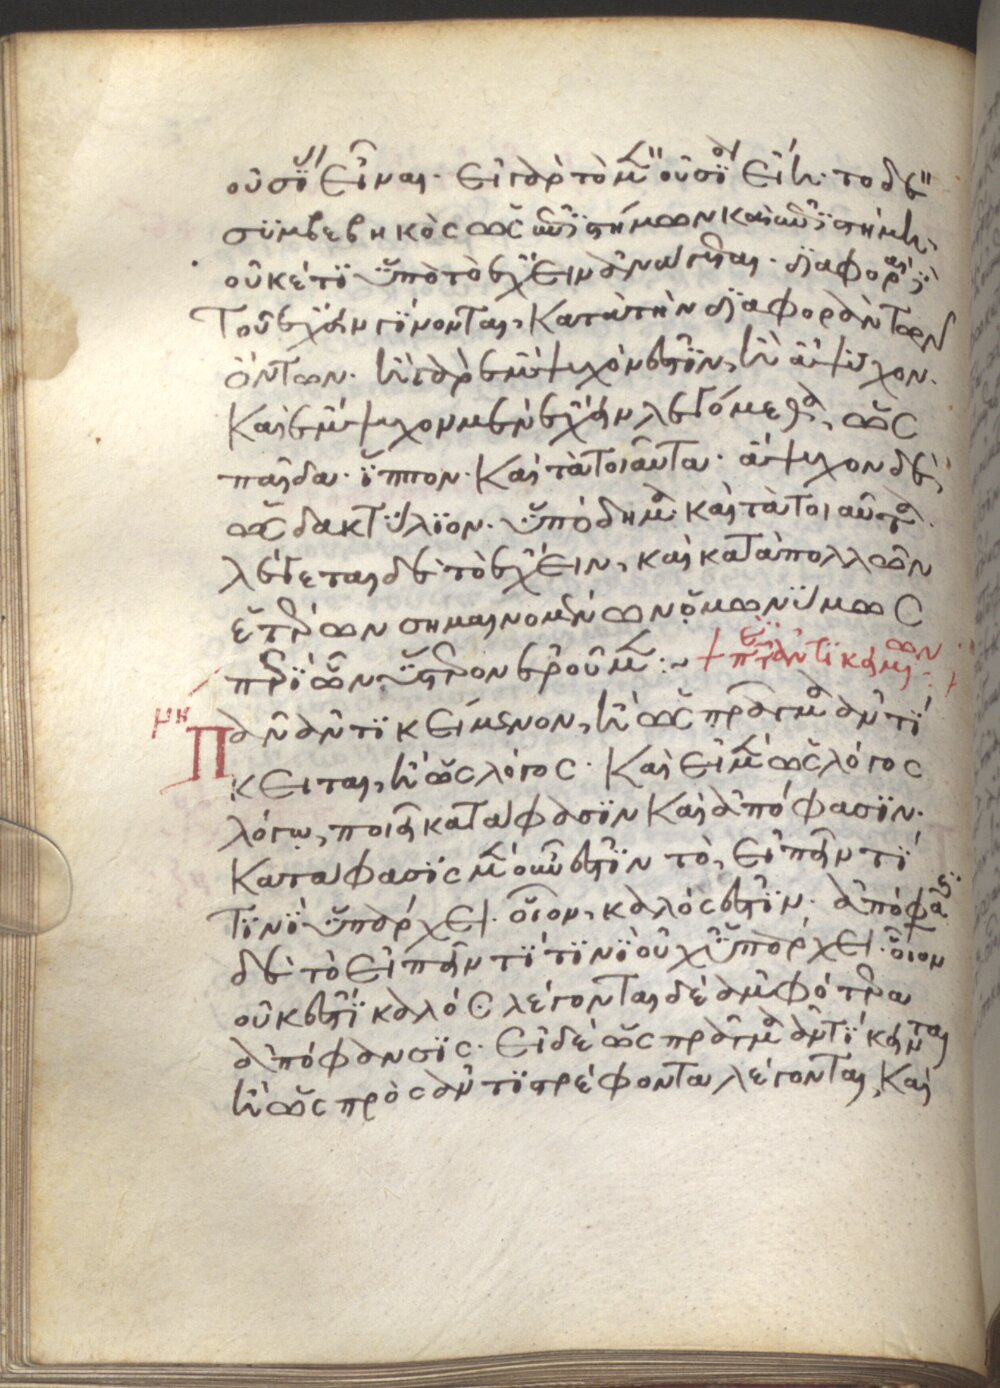 οὐσία εἶναι. εἰ γὰρ τὸ μὲν οὐσία εἴη. τὸ δὲ
συμβεβηκὸς ὡς ἐπιστήμων καὶ ἐπιστήμη,
οὐκέτι ὑπὸ τὸ ἔχειν ἀνάγεται. διαφοραὶ
τοῦ ἔχειν γίνονται, κατὰ τὴν διαφορὰν τῶν
ὄντων. ἢ γὰρ ἔμψυχόν ἐστιν, ἢ ἄψυχον.
καὶ ἔμψυχον μὲν ἔχειν λεγόμεθα, ὡς
παῖδα. ἵππον. καὶ τὰ τοιαῦτα. ἄψυχον δὲ,
ὡς δακτύλιον. ὑπόδημα. καὶ τὰ τοιαῦτα.
λέγεται δὲ τὸ ἔχειν, καὶ κατὰ πολλῶν
ἑτέρων σημαινομένων ὁμωνύμως
περὶ ὧν ὕστερον ἐροῦμεν :~ + περὶ τῶν ἀντικειμένων +
μη Πᾶν ἀντικείμενον, ἢ ὡς πρᾶγμα ἀντί
κειται, ἢ ὡς λόγος. καὶ εἰ μὲν ὡς λόγος
λόγω, ποιεῖ κατάφασιν καὶ ἀπόφασιν.
κατάφασις μὲν οὖν ἐστιν τὸ, εἰπεῖν τί
τινὶ ὑπάρχει. οἷον, καλός ἐστιν. ἀπόφασις
δὲ τὸ εἰπεῖν τί τινὶ οὐχ ὑπάρχει. οἷον
οὐκ ἔστι καλός λέγονται δὲ ἀμφότερα
ἀπόφανσις. εἰ δὲ ὡς πρᾶγμα ἀντίκειται
ἢ ὡς πρὸς ἀντιστρέφοντα λέγονται, καὶ